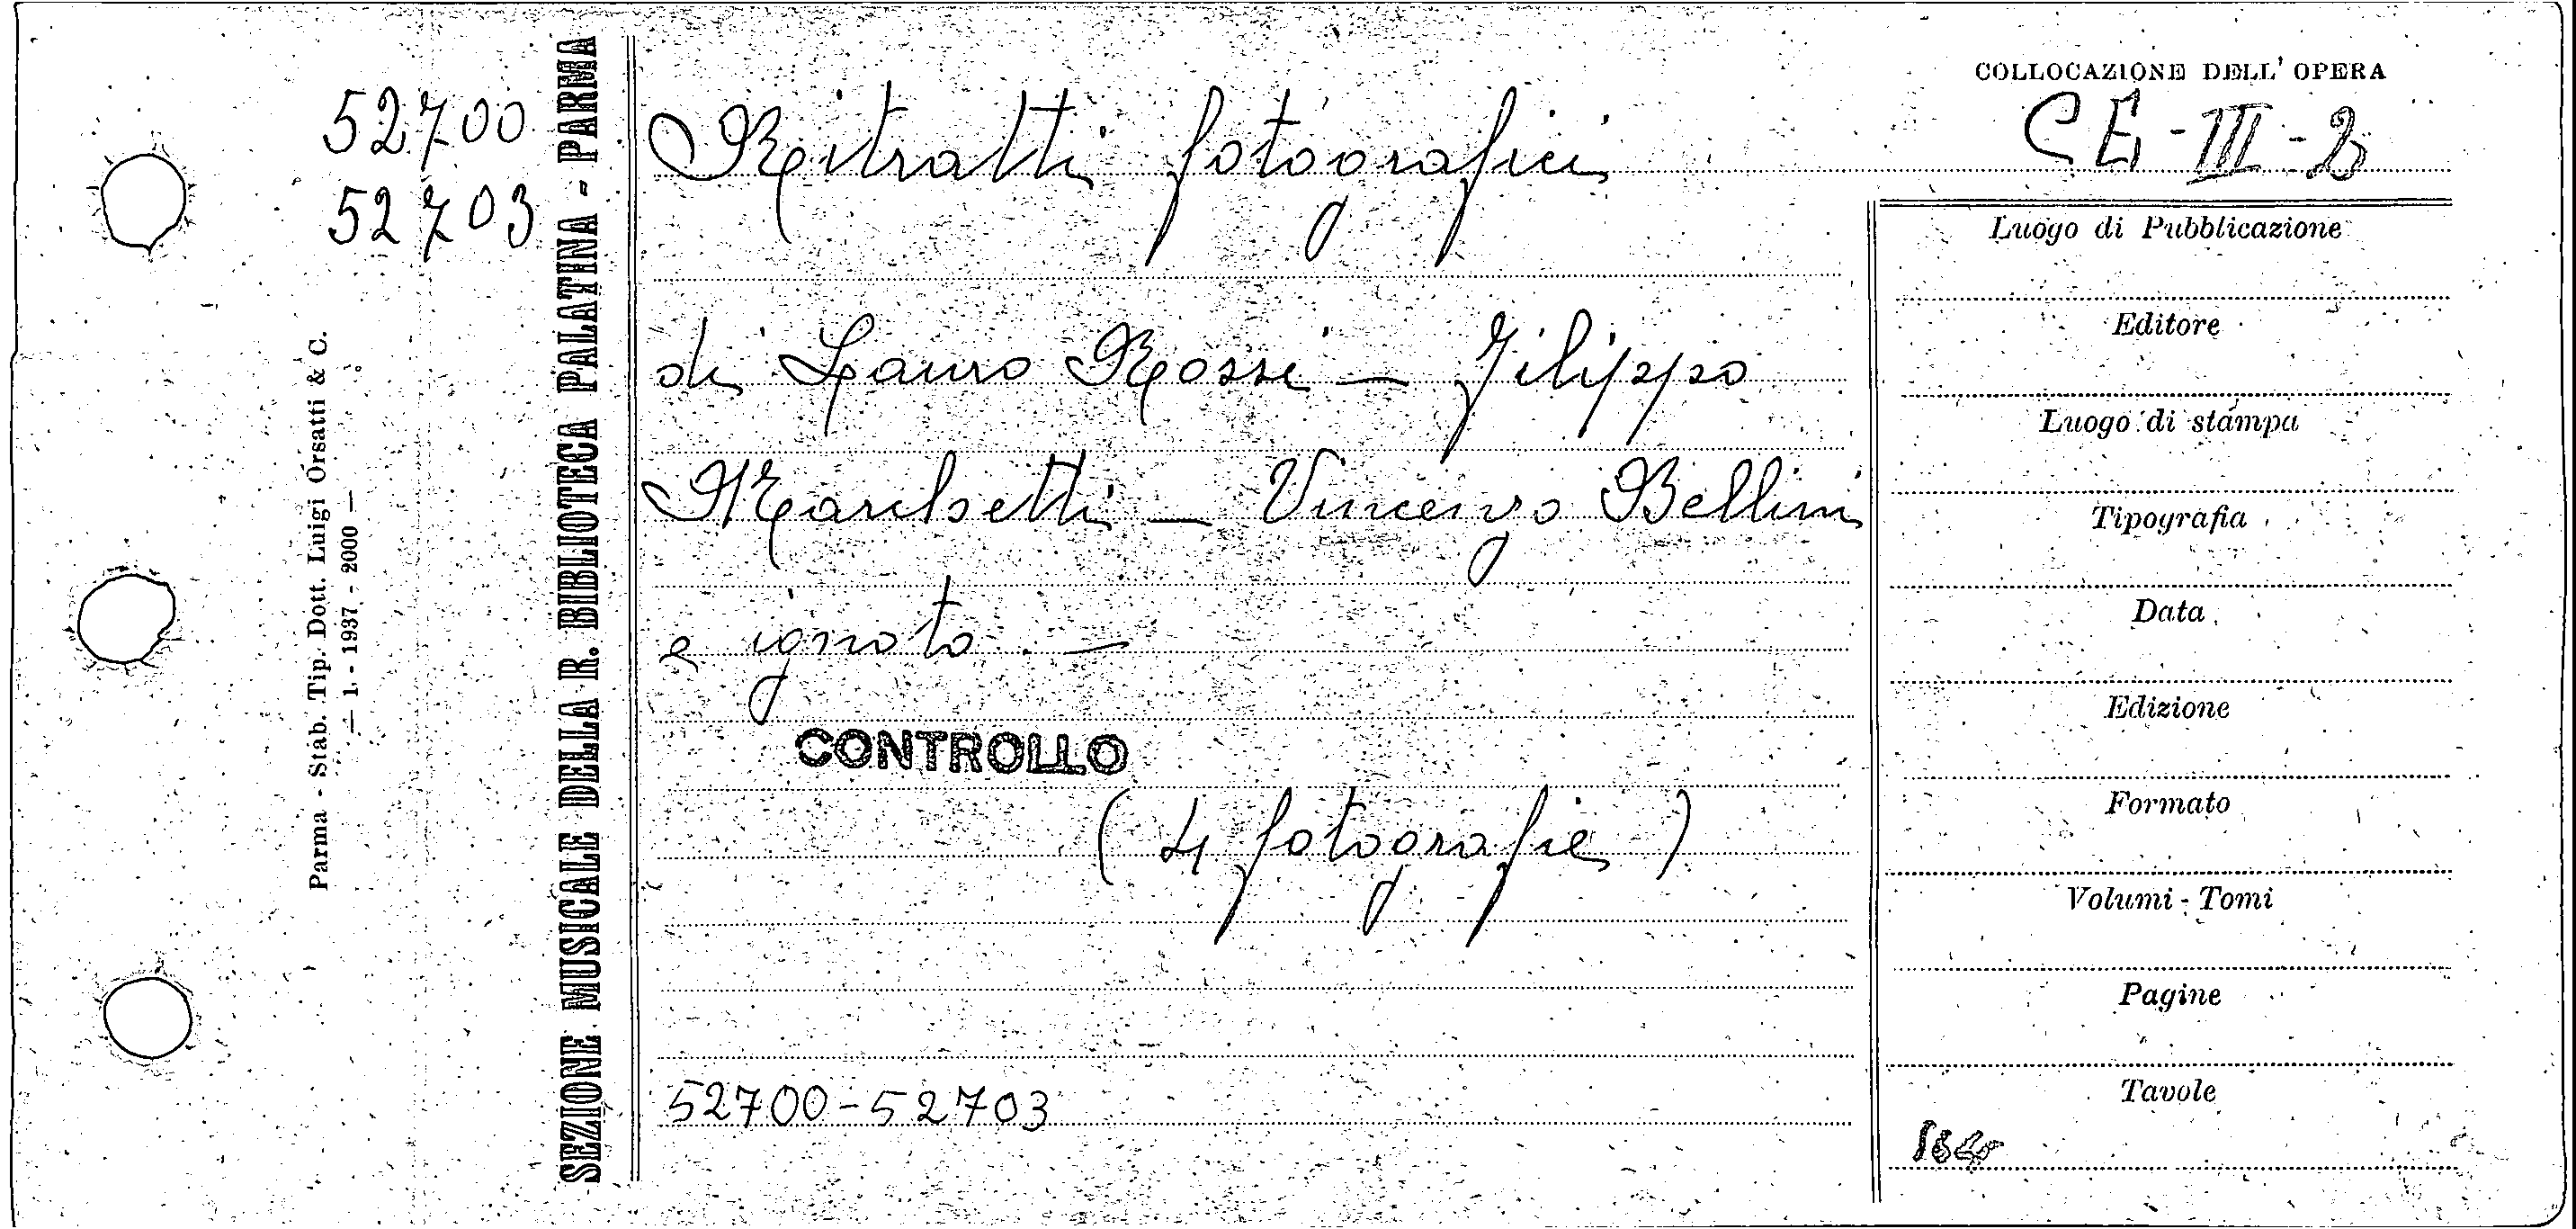 52700
52703
Parma - Stab. Tip. Dott. Luigi Orsatti & C.
— 1. - 1937 - 2000 —
SEZIONE MUSICALE DELLA R. BIBLIOTECA PALATINA - PARMA
Ritratti fotografici
di Lauro Rossi — Filippo
Marchetti — Vincenzo Bellini
e ignoto. —
CONTROLLO
(4 fotografie)
52700-52703
COLLOCAZIONE DELL'OPERA
III
Luogo di Pubblicazione
Editore
Luogo di stampa
Tipografia
Data
Edizione
Formato
Volumi - Tomi
Pagine
Tavole